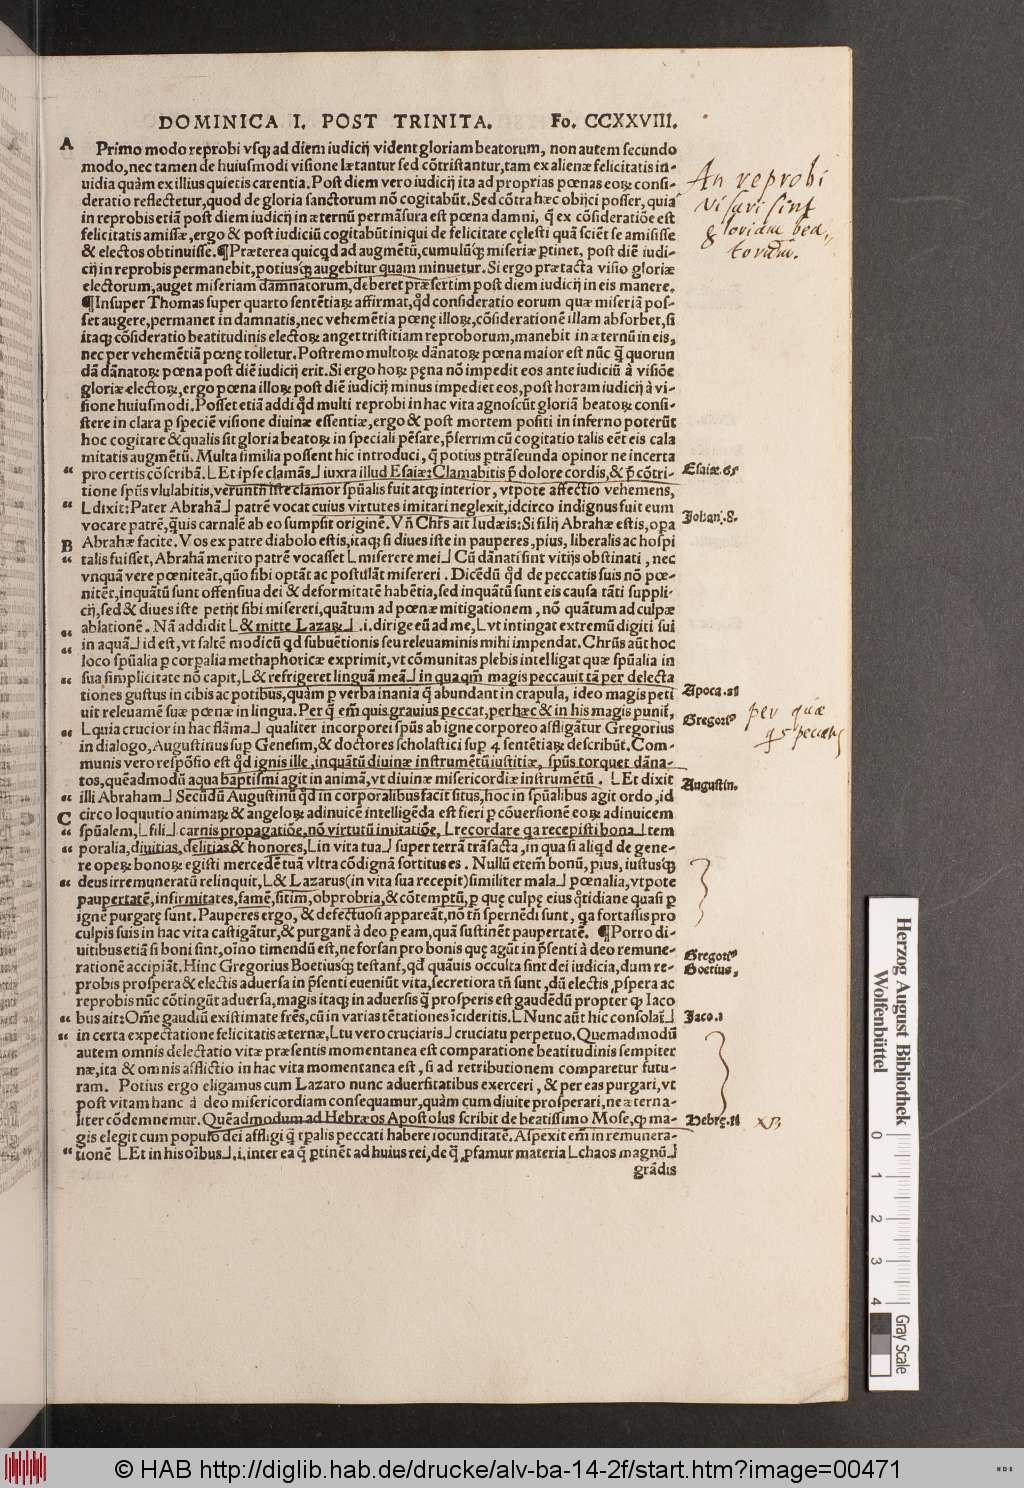 DOMINICA I. POST TRINITA. Fo. CCXXVIII.
A Primo modo reprobi vsq; ad diem iudicij vident gloriam beatorum, non autem secundo
modo, nec tamen de huiusmodi visione lætantur sed cõtristantur, tam ex alienæ felicitatis in-
uidia quàm ex illius quietis carentia. Post diem vero iudicij ita ad proprias pœnas eoꝝ consi-
deratio reflectetur, quod de gloria sanctorum nõ cogitabũt. Sed cõtra hæc obijci posset, quia
in reprobis etiã post diem iudicij in æternũ permãsura est pœna damni, q̃ ex cõsideratiõe est
felicitatis amissæ, ergo & post iudiciũ cogitabũt iniqui de felicitate cęlesti quã sciẽt se amisisse
& electos obtinuisse. ¶ Præterea quicqd ad augmẽtũ, cumulũq; miseriæ ꝑtinet, post diẽ iudi-
cij in reprobis permanebit, potiusq; augebitur quam minuetur. Si ergo prætacta visio gloriæ
electorum, auget miseriam damnatorum, deberet præsertim post diem iudicij in eis manere.
¶ Insuper Thomas super quarto sentẽtiaꝝ affirmat, qd consideratio eorum quæ miseriã pos-
set augere, permanet in damnatis, nec vehemẽtia pœnę illoꝝ, cõsiderationẽ illam absorbet, si
itaq; cõsideratio beatitudinis electoꝝ anget tristitiam reproborum, manebit in æternũ in eis,
nec per vehemẽtiã pœnę tolletur. Postremo multoꝝ dãnatoꝝ pœna maior est nũc q̃ quorun
dã dãnatoꝝ pœna post diẽ iudicij erit. Si ergo hoꝝ pęna nõ impedit eos ante iudiciũ à visiõe
gloriæ electoꝝ, ergo pœna illoꝝ post diẽ iudicij minus impediet eos, post horam iudicij à vi-
sione huiusmodi. Posset etiã addi qd multi reprobi in hac vita agnoscũt gloriã beatoꝝ consi-
stere in clara ꝑ speciẽ visione diuinæ essentiæ, ergo & post mortem positi in inferno poterũt
hoc cogitare & qualis sit gloria beatoꝝ in speciali pẽsare, p̃serrim cũ cogitatio talis eẽt eis cala
mitatis augmẽtũ. Multa similia possent hic introduci, q̃ potius ꝑtrãseunda opinor ne incerta
pro certis cõscribã. L Et ipse clamãs⅃ iuxra illud Esaiæ: Clamabitis p̃ dolore cordis, & p̃ cõtri-
tione spũs vlulabitis, verunt̃ iste clamor spũalis fuit atq; interior, vtpote affectio vehemens,
L dixit: Pater Abrahã⅃ patrẽ vocat cuius virtutes imitari neglexit, idcirco indignus fuit eum
vocare patrẽ, q̃uis carnalẽ ab eo sumpsit originẽ. Vñ Chr̃s ait Iudæis: Si filij Abrahæ estis, opa
B Abrahæ facite. Vos ex patre diabolo estis, itaq; si diues iste in pauperes, pius, liberalis ac hospi
talis fuisset, Abrahã merito patrẽ vocasset L miserere mei⅃ Cũ dãnati sint vitijs obstinati, nec
vnquã vere pœniteãt, qũo sibi optãt ac postulãt misereri. Dicẽdũ qd de peccatis suis nõ pœ-
nitẽt, inquãtũ sunt offensiua dei & deformitatẽ habẽtia, sed inquãtũ sunt eis causa tãti suppli-
cij, sed & diues iste petijt sibi misereri, quãtum ad pœnæ mitigationem, nõ quãtum ad culpæ
ablationẽ. Nã addidit L & mitte Lazaꝝ⅃ .i. dirige eũ ad me, L vt intingat extremũ digiti sui
in aquã⅃ id est, vt saltẽ modicũ qd subuẽtionis seu releuaminis mihi impendat. Chrũs aũt hoc
loco spũalia ꝑ corpalia methaphoricæ exprimit, vt cõmunitas plebis intelligat quæ spũalia in
sua simplicitate nõ capit, L & refrigeret linguã meã⅃ in qua qm̃ magis peccauit tã per delecta
tiones gustus in cibis ac potibus, quàm ꝑ verba inania q̃ abundant in crapula, ideo magis peti
uit releuamẽ suæ pœnæ in lingua. Per q̃ em̃ quis grauius peccat, per hæc & in his magis puniť,
L quia crucior in hac flãma⅃ qualiter incorporei spũs ab igne corporeo affligãtur Gregorius
in dialogo, Augustinus sup Genesim, & doctores scholastici sup 4 sentẽtiaꝝ describũt. Com-
munis vero respõsio est qd ignis ille, inquãtũ diuinæ instrumẽtũ iustitiæ, spũs torquet dãna-
tos, quẽadmodũ aqua baptismi agit in animã, vt diuinæ misericordiæ instrumẽtũ. L Et dixit
illi Abraham⅃ Secũdũ Augustinũ qd in corporalibus facit situs, hoc in spũalibus agit ordo, id
C circo loquutio animaꝝ & angeloꝝ adinuicẽ intelligẽda est fieri ꝑ cõuersionẽ eoꝝ adinuicem
spũalem, L fili⅃ carnis propagatiõe, nõ virtutũ imitatiõe, L recordare qa recepisti bona⅃ tem
poralia, diuitias, delitias & honores, L in vita tua⅃ super terrã trãsacta, in qua si aliqd de gene-
re opeꝝ bonoꝝ egisti mercedẽ tuã vltra cõdignã sortitus es. Nullũ etem̃ bonũ, pius, iustusq;
deus irremuneratũ relinquit, L & Lazarus (in vita sua recepit) similiter mala⅃ pœnalia, vtpote
paupertatẽ, infirmitates, famẽ, sitim, obprobria, & cõtemptũ, ꝑ quę culpę eius q̃tidiane quasi ꝑ
ignẽ purgatę sunt. Pauperes ergo, & defectuosi appareãt, nõ tñ spernẽdi sunt, qa fortassis pro
culpis suis in hac vita castigãtur, & purgant̃ à deo ꝑ eam, quã sustinẽt paupertatẽ. ¶ Porro di-
uitibus etiã si boni sint, oĩno timendũ est, ne forsan pro bonis quę agũt in p̃senti à deo remune-
rationẽ accipiãt. Hinc Gregorius Boetiusq; testant̃, qd quãuis occulta sint dei iudicia, dum re-
probis prospera & electis aduersa in p̃senti eueniũt vita, secretiora tñ sunt, dũ electis ꝓspera ac
reprobis nũc cõtingũt aduersa, magis itaq; in aduersis q̃ prosperis est gaudẽdũ propter qp Iaco
bus ait: Om̃e gaudiũ existimate fr̃es, cũ in varias tẽtationes ĩcideritis. L Nunc aũt hic consolať⅃
in certa expectatione felicitatis æternæ, L tu vero cruciaris⅃ cruciatu perpetuo. Quemadmodũ
autem omnis delectatio vitæ præsentis momentanea est comparatione beatitudinis sempiter
næ, ita & omnis afflictio in hac vita momentanea est, si ad retributionem comparetur futu-
ram. Potius ergo eligamus cum Lazaro nunc aduersitatibus exerceri, & per eas purgari, vt
post vitam hanc à deo misericordiam consequamur, quàm cum diuite prosperari, ne æterna-
liter cõdemnemur. Quẽadmodum ad Hebræos Apostolus scribit de beatissimo Mose, qp ma-
gis elegit cum populo dei affligi q̃ tꝑalis peccati habere iocunditatẽ. Aspexit em̃ in remunera-
tionẽ L Et in his oĩbus⅃ .i. inter ea q̃ ꝑtinẽt ad huius rei, de q̃ ꝓfamur materia L chaos magnũ⅃
grãdis
An reprobi
visuri sint
gloriam bea-
torum.
Esaiæ. 65
Johan. 8.
Apoca. 18
Gregoriꝰ
per quæ
qs peccat
Augustin.
Gregoriꝰ
Boetius,
Jaco. 1
Hebrę. 11 XB
Herzog August Bibliothek
Wolfenbüttel
0 1 2 3 4
Gray Scale
© HAB http://diglib.hab.de/drucke/alv-ba-14-2f/start.htm?image=00471